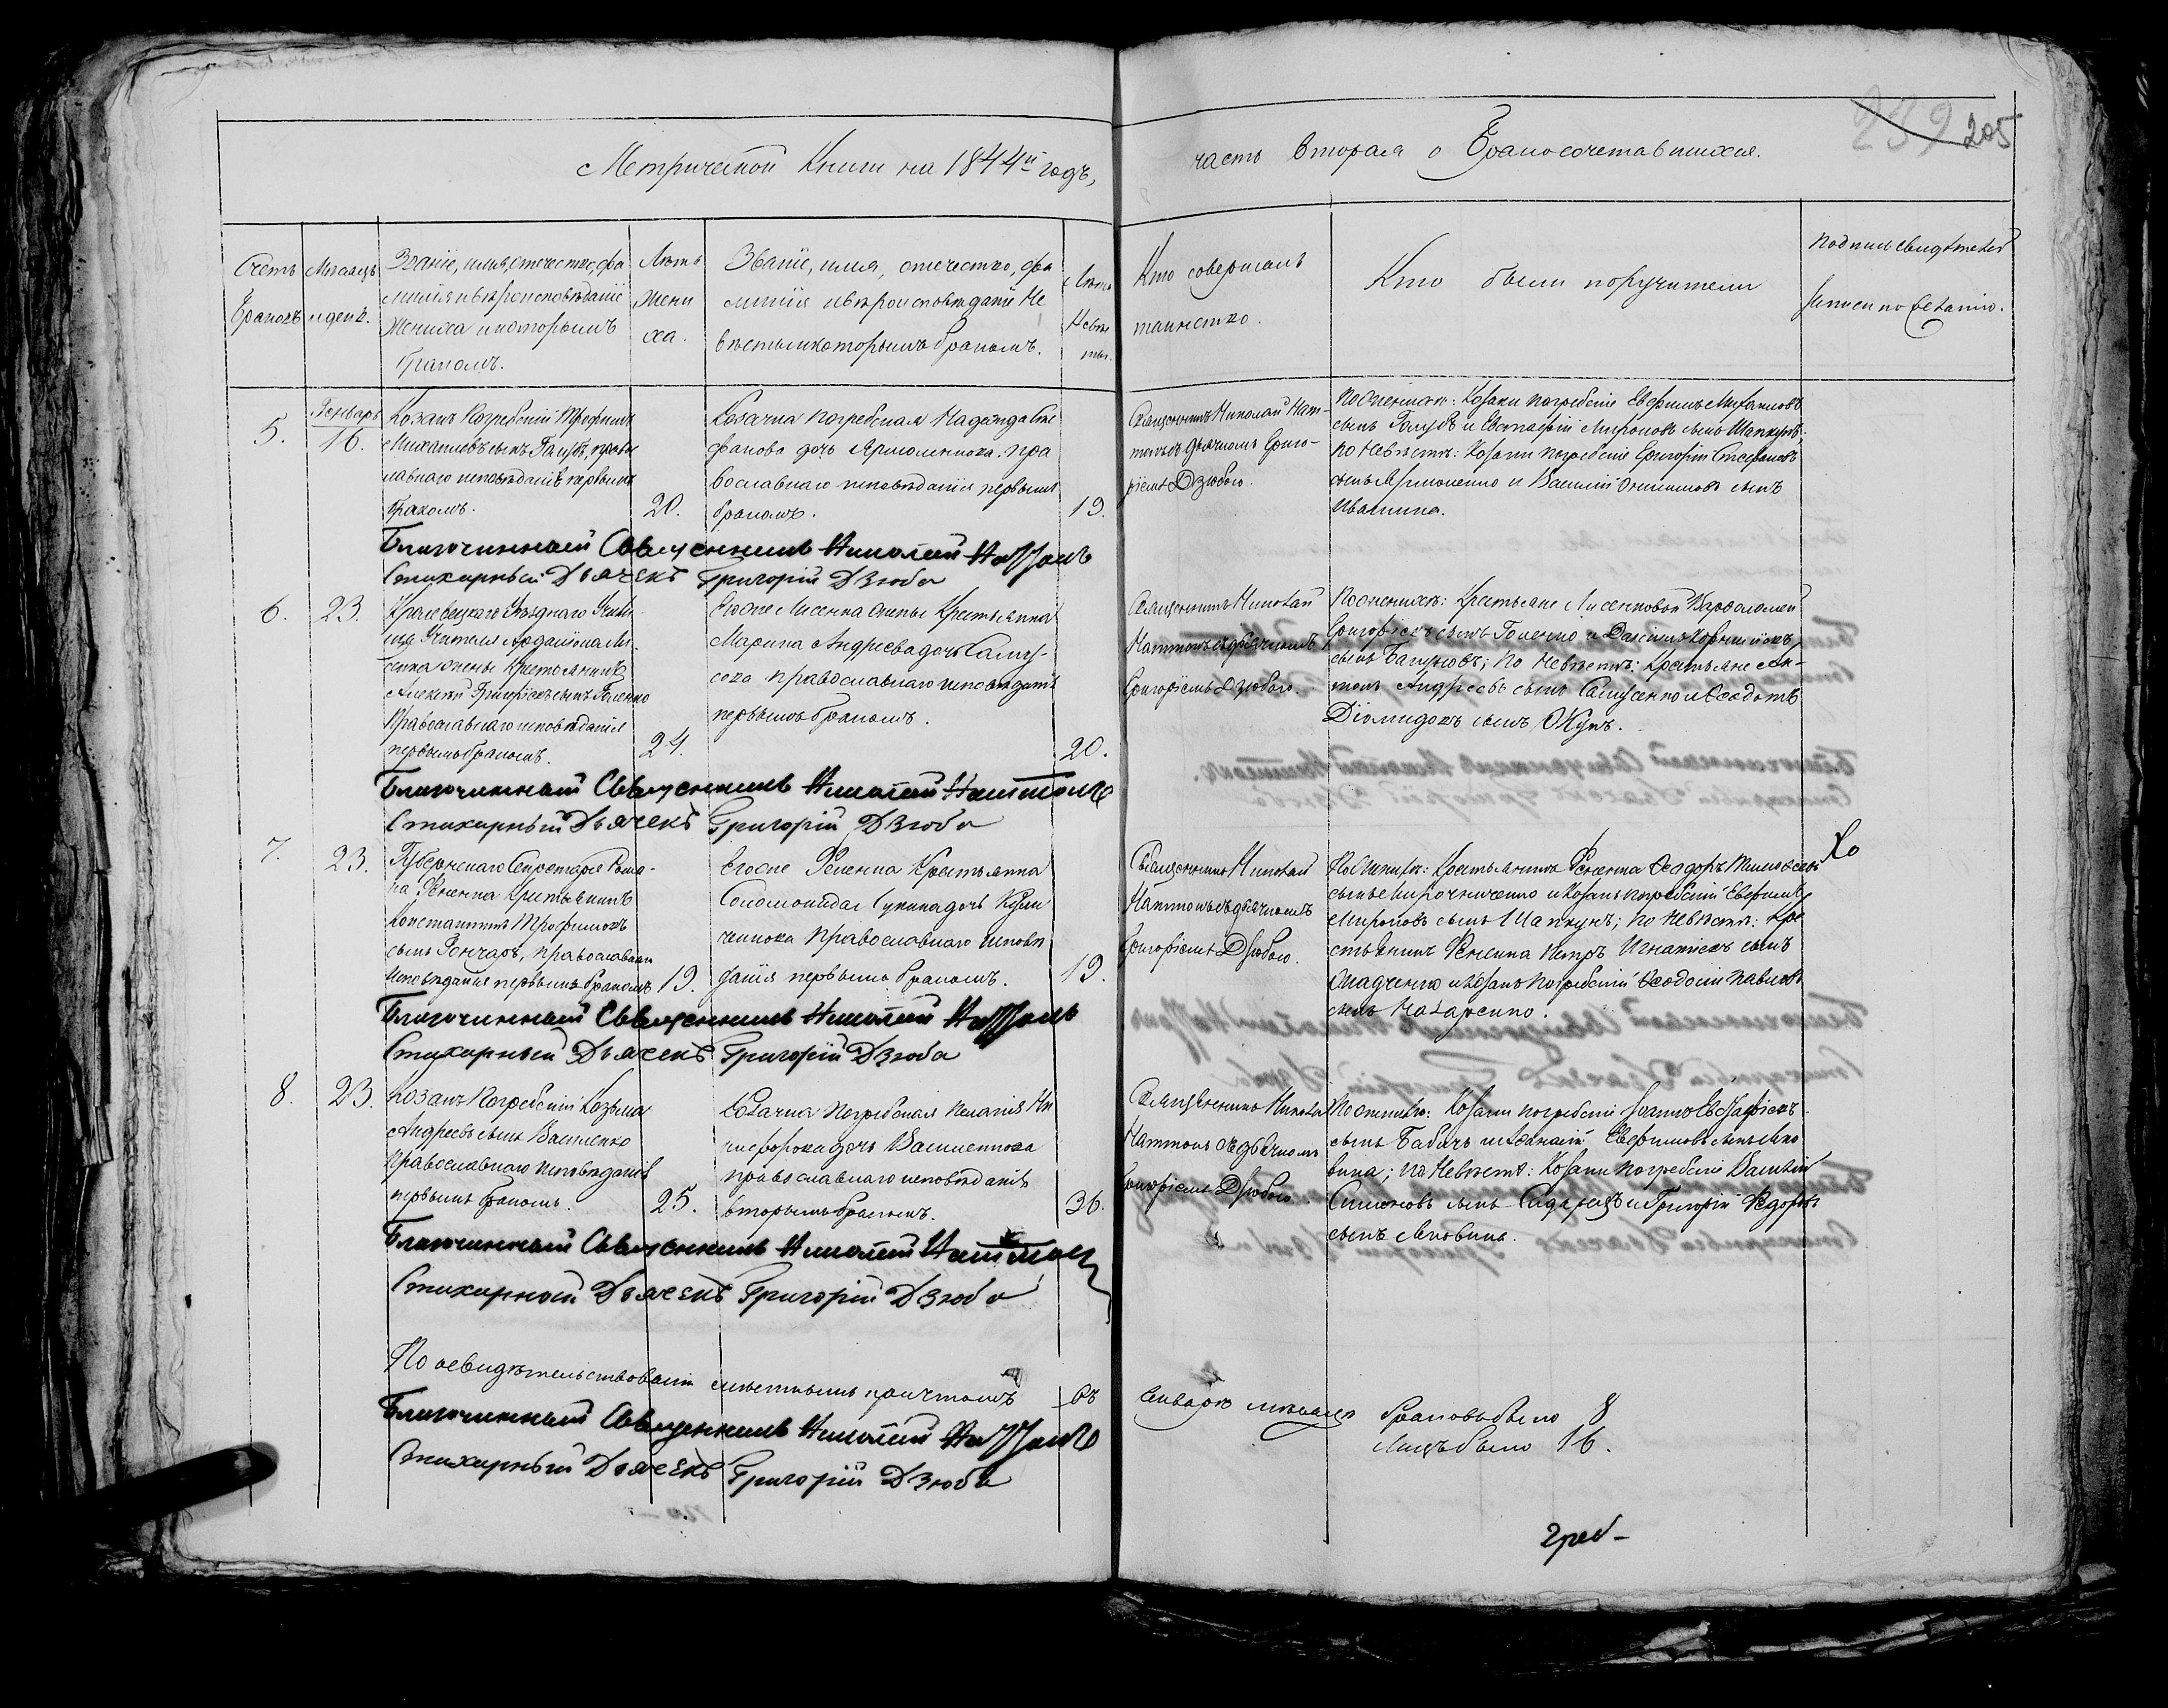 Метрической Книги на 1844й годъ,
часть вторая о Бракосочетавшихся.
205
Счетъ Браковъ
Мѣсяцъ и день.
Званіе, имя, отечество, фа
милія и вѣроисповѣданіе
Жениха и которымъ
бракомъ.
Лѣтъ
Жени
ха.
Званіе, имя, отечество, фа
милія и вѣроисповѣданіе Не
вѣсты и которымъ бракомъ.
Лѣта
Невѣс
ты.
Кто совершалъ
таинство.
Кто были поручители
Подпись свидѣтелей
записи по желанію.
5.
Январь
16.
Козакъ Погребскій Трофимъ
Михайловъ сынъ Голубъ, право
славнаго исповѣданія первымъ
бракомъ.
20.
Козачка Погребская Надежда Сте
фанова дочь Ярмоленкова. пра
вославнаго исповѣданія первымъ
бракомъ.
19.
Священникъ Николай Нат-
токъ съ дьячкомъ Григо-
ріемъ Дзюбою.
По женихѣ: Козаки погребскіе Евфимъ Михайловъ
сынъ Голубъ и Евстафій Мироновъ сынъ Шапкунъ;
по Невѣстѣ: Козаки погребскіе Григорій Стефановъ
сынъ Ярмоленко и Василій Онисимовъ сынъ
Ивашина.
Благочинный Священникъ Николай Наттокъ
Стихарный Дьячекъ Григорій Дзюба
6.
23.
Кролевецкаго Уѣзднаго Учили
ща Учителя Ардаліона Ли-
сенка жены Крестьянинъ
Алексѣй Григоріевъ сынъ Голенко
Православнаго исповѣданія
первымъ бракомъ.
24.
Егоже Лисенка жены Крестьянка
Марина Андреева дочь Саму-
сова православнаго исповѣданія
первымъ бракомъ.
20.
Священникъ Николай
Наттокъ съ дьячкомъ
Григоріемъ Дзюбою.
По женихѣ: Крестьяне Лисенковой Варфоломей
Григоріевъ сынъ Голенко и Даніилъ Корниліевъ
сынъ; По Невѣстѣ: Крестьяне Ан-
тонъ Андреевъ сынъ Самусенко и Ѳеодотъ
Діомидовъ сынъ Жукъ.
Благочинный Священникъ Николай Наттокъ
Стихарный Дьячекъ Григорій Дзюба
7.
23.
Губернскаго Секретаря Рома-
на Фененка Крестьянинъ
Константинъ Трофимовъ
сынъ Гончаръ, православнаго
исповѣданія первымъ бракомъ
19.
Егоже Фененка Крестьянка
Соломонида Лукина дочь
православнаго исповѣ
данія первымъ бракомъ.
19.
Священникъ Николай
Наттокъ съ дьячкомъ
Григоріемъ Дзюбою.
По Женихѣ: Крестьянинъ Фененка Ѳеодоръ
сынъ Мирочниченко и Козакъ погребскій Евфимъ
Мироновъ сынъ Шапкунъ; по Невѣстѣ: Кре
стьянинъ Фененка Петръ Игнатіевъ сынъ
и Козакъ погребскій Ѳеодосій Павловъ
сынъ Назаренко.
Благочинный Священникъ Николай Наттокъ
Стихарный Дьячекъ Григорій Дзюба
8.
23.
Козакъ Погребскій Козьма
Андреевъ сынъ Василенко
Православнаго исповѣданія
первымъ бракомъ.
25.
Козачка Погребская Пелагія Ни
кифорова дочь Василенкова
православнаго исповѣданія
вторымъ бракомъ.
36.
Священникъ Николай
Наттокъ съ дьячкомъ
Григоріемъ Дзюбою.
По женихѣ: Козаки погребскіе Іоаннъ
сынъ Бабичъ и Аѳанасій Евфимовъ сынъ
; по Невѣстѣ: Козаки погребскіе Василій
Симоновъ сынъ и Григорій Ѳедоровъ
сынъ
Благочинный Священникъ Николай Наттокъ
Стихарный Дьячекъ Григорій Дзюба
По освидѣтельствованіи мѣстнымъ причтомъ въ
Январѣ мѣсяцѣ браковъ было 8
Лицъ было 16.
Благочинный Священникъ Николай Наттокъ
Стихарный Дьячекъ Григорій Дзюба